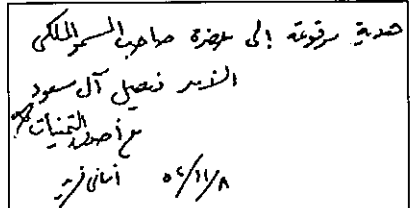 هدية مرفوعة إلى حضرة صاحب السمو الملكي
الأمير فيصل آل سعود
مع أصدق التمنيات
٥٤/١١/٨